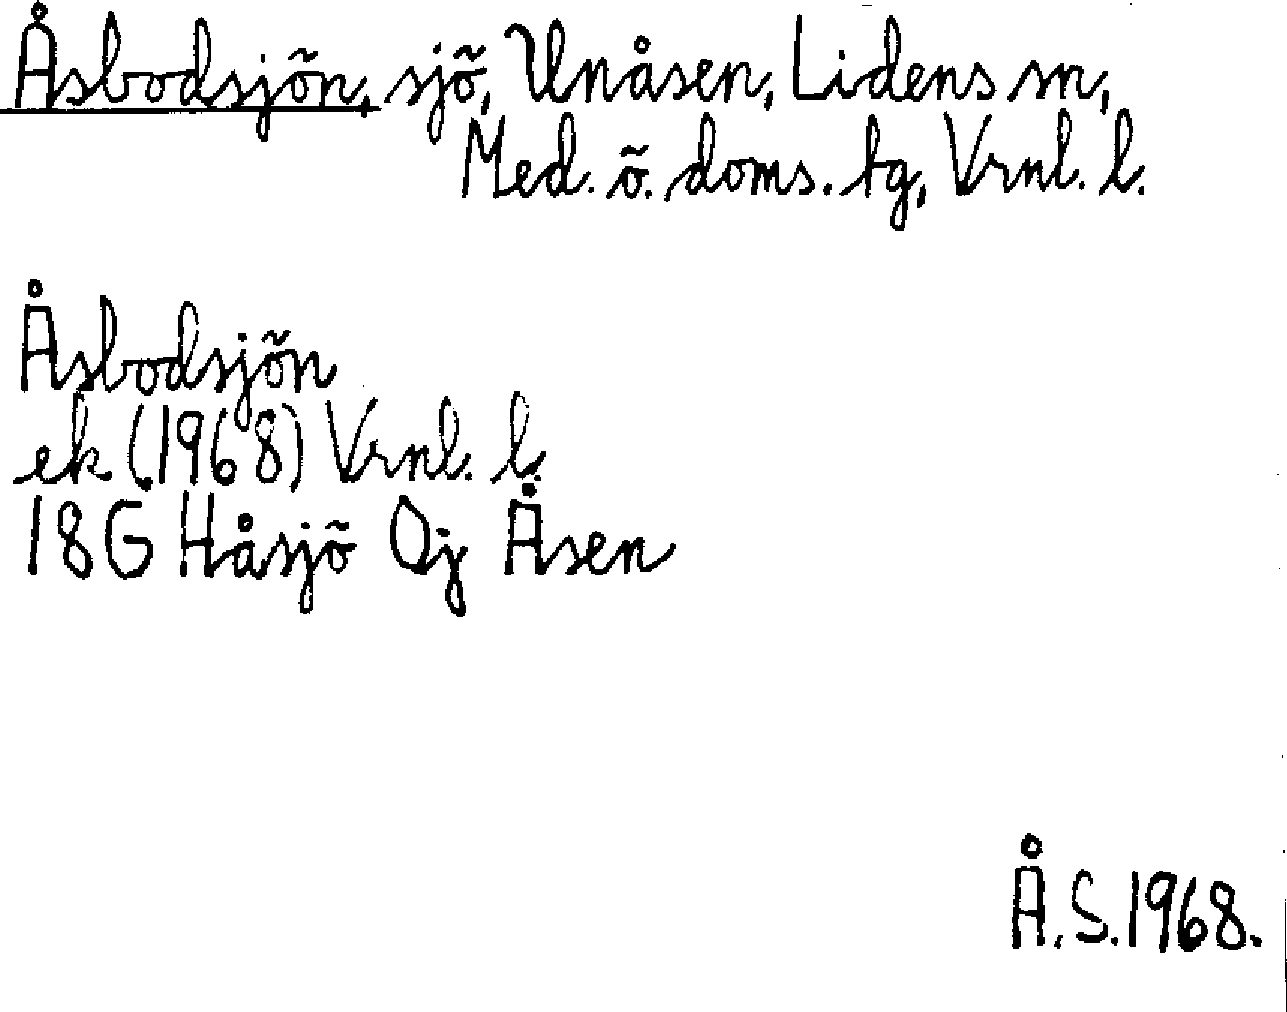 Åsbodsjön, sjö, Unåsen, Lidens sn,
Med. ö. doms. tg, Vrnl. l.
Åsbodsjön
ek (1968) Vrnl. l.
18G Håsjö Oj Åsen
Å.S.1968.